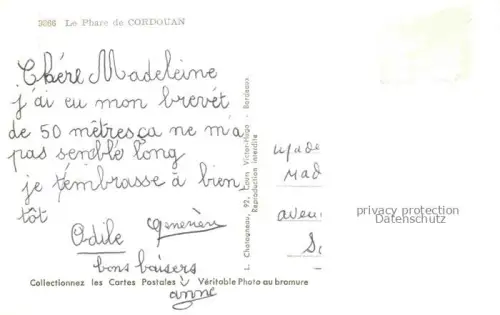 3366 Le Phare de CORDOUAN
Chére Madeleine
j'ai eu mon brevet
de 50 mêtres ça ne m'a
pas semblé long
je t'embrasse à bien
tôt
Odile
Geneviève
bons baisers
anne
Collectionnez les Cartes Postales Véritable Photo au bromure
L. Chatagneau, 92, Cours Victor-Hugo - Bordeaux
Reproduction interdite
Mad
aven
privacy protection
Datenschutz